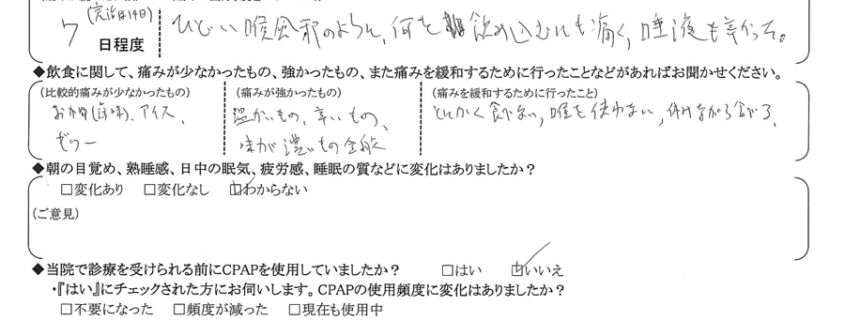 (完治は14日)
7 日程度
ひどい喉風邪のように、何を飲み込むにも痛く、唾液も辛かった。
◆飲食に関して、痛みが少なかったもの、強かったもの、また痛みを緩和するために行ったことなどがあればお聞かせください。
(比較的痛みが少なかったもの) (痛みが強かったもの) (痛みを緩和するために行ったこと)
お粥(薄味)、アイス、 温かいもの、辛いもの、 とにかく食べない、喉を使わない、休みながら食べる、
ゼリー 味が濃いもの全般
◆朝の目覚め、熟睡感、日中の眠気、疲労感、睡眠の質などに変化はありましたか？
□変化あり □変化なし ☑わからない
(ご意見)
◆当院で診療を受けられる前にCPAPを使用していましたか？ □はい ☑いいえ
・『はい』にチェックされた方にお伺いします。CPAPの使用頻度に変化はありましたか？
□不要になった □頻度が減った □現在も使用中